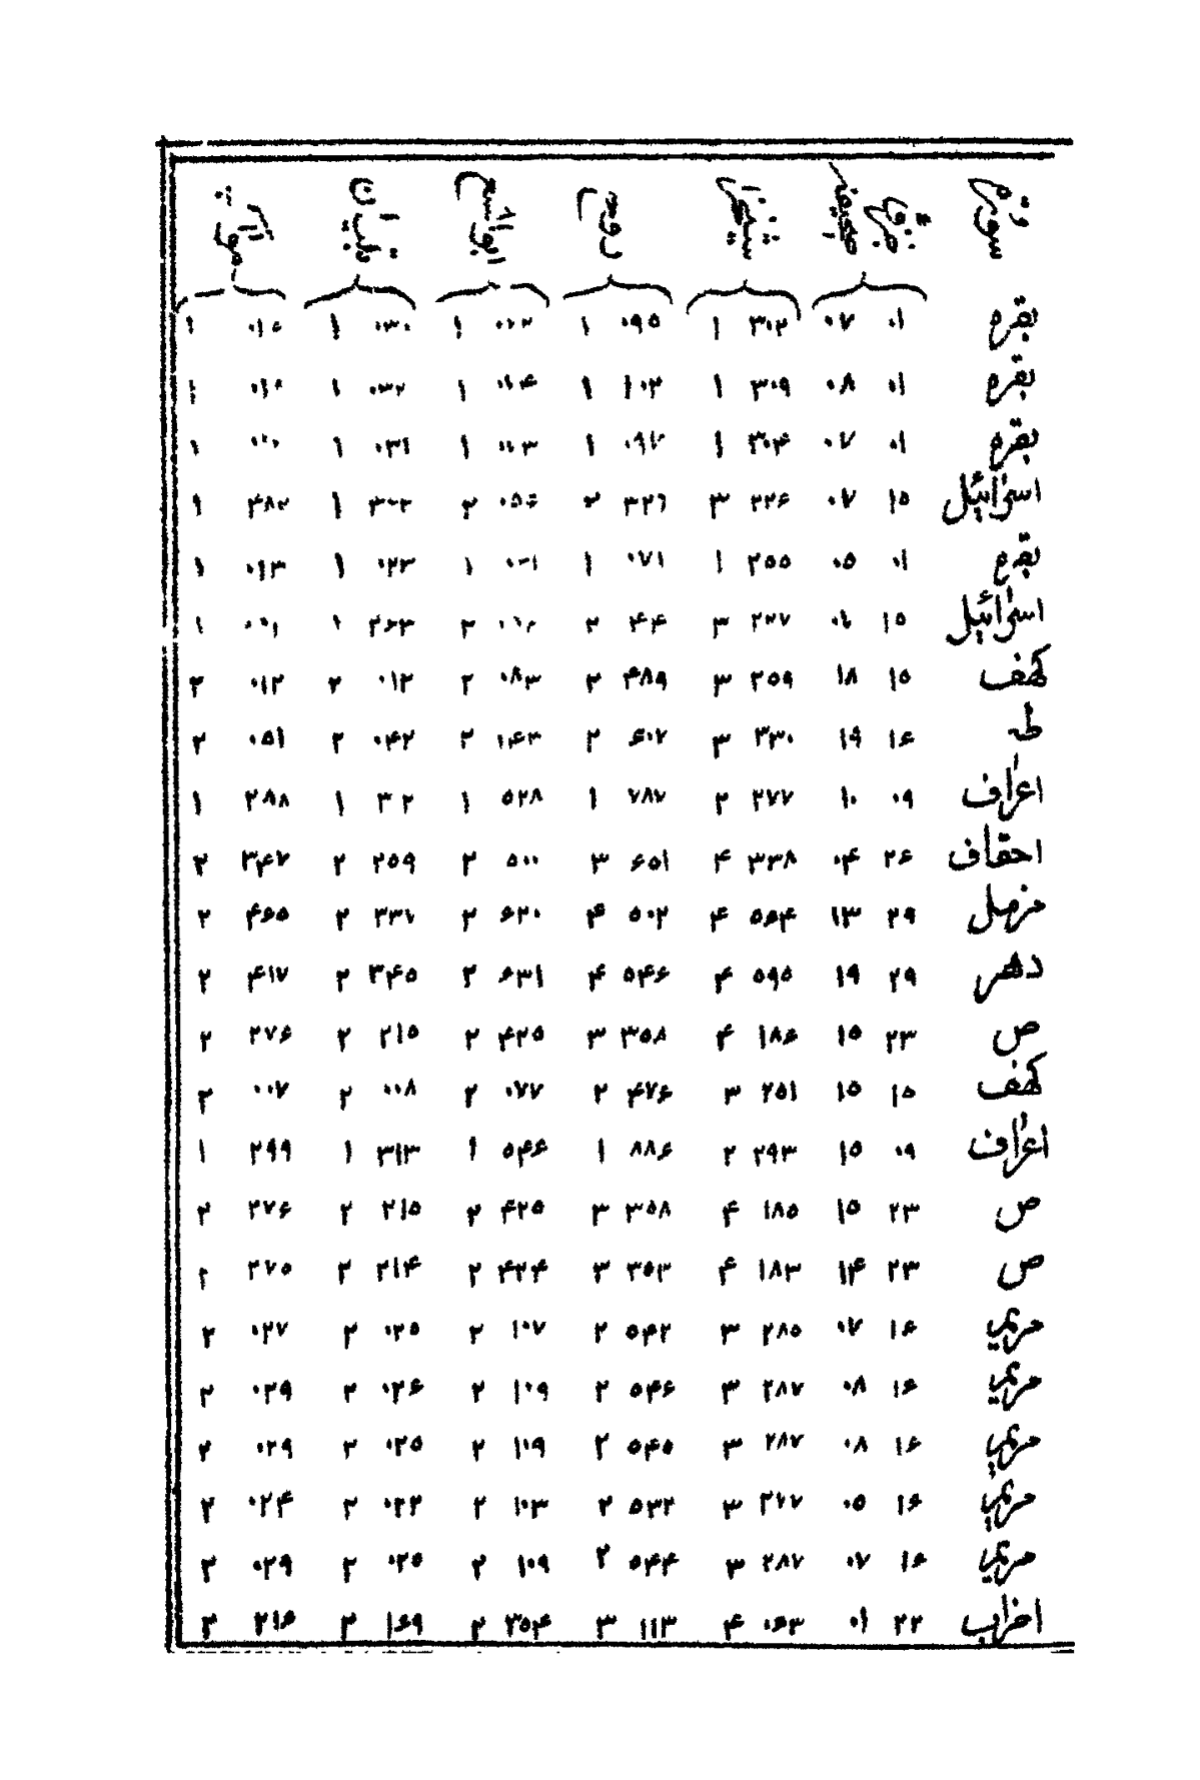 سوره
بقره ۰۱ ۰۷ ۳۰۲ ۱ ۰۹۵ ۱ ۱ ۰۳۰ ۱ ۱
بقره ۰۱ ۰۸ ۳۰۹ ۱ ۱۰۲ ۱ ۱ ۰۳۲ ۱ ۱
بقره ۰۱ ۰۷ ۳۰۴ ۱ ۰۹۷ ۱ ۱ ۰۳۱ ۱ ۱
اسرائیل ۱۵ ۰۷ ۲۲۶ ۳ ۳۲۶ ۲ ۲ ۱ ۴۸۲ ۱
بقره ۰۱ ۰۵ ۲۵۵ ۱ ۰۷۱ ۱ ۱ ۰۲۳ ۱ ۰۱۳ ۱
اسرائیل ۱۵ ۲۲۷ ۳ ۴۴ ۲ ۲ ۲۶۳ ۱ ۱
کهف ۱۵ ۱۸ ۲۵۹ ۳ ۴۸۹ ۲ ۰۸۳ ۲ ۰۱۲ ۲ ۰۱۲ ۲
طه ۱۶ ۱۹ ۳۳۰ ۳ ۶۰۷ ۲ ۱۴۳ ۲ ۰۴۲ ۲ ۰۵۱ ۲
اعراف ۰۹ ۱۰ ۲۷۷ ۲ ۷۸۷ ۱ ۵۲۸ ۱ ۳۲ ۱ ۲۸۸ ۱
احقاف ۲۶ ۰۴ ۳۳۸ ۴ ۶۵۱ ۳ ۵۰۰ ۲ ۲۵۹ ۲ ۳۴۷ ۲
مزمل ۲۹ ۱۳ ۵۶۴ ۴ ۵۰۲ ۴ ۶۲۰ ۲ ۳۳۷ ۲ ۴۶۵ ۲
دهر ۲۹ ۱۹ ۵۹۵ ۴ ۵۴۶ ۴ ۶۳۱ ۲ ۳۴۵ ۲ ۴۱۷ ۲
ص ۲۳ ۱۵ ۱۸۶ ۴ ۳۵۸ ۳ ۴۲۵ ۲ ۲۱۵ ۲ ۲۷۶ ۲
کهف ۱۵ ۱۵ ۲۵۱ ۳ ۴۷۶ ۲ ۰۷۷ ۲ ۰۰۸ ۲ ۰۰۷ ۲
اعراف ۰۹ ۱۵ ۲۹۳ ۲ ۸۸۶ ۱ ۵۴۶ ۱ ۳۱۳ ۱ ۲۹۹ ۱
ص ۲۳ ۱۵ ۱۸۵ ۴ ۳۵۸ ۳ ۴۲۵ ۲ ۲۱۵ ۲ ۲۷۶ ۲
ص ۲۳ ۱۴ ۱۸۳ ۴ ۳۵۳ ۳ ۴۲۴ ۲ ۲۱۴ ۲ ۲۷۵ ۲
مریم ۱۶ ۰۷ ۲۸۵ ۳ ۵۴۲ ۲ ۱۰۷ ۲ ۰۲۵ ۲ ۰۲۷ ۲
مریم ۱۶ ۰۸ ۲۸۷ ۳ ۵۴۶ ۲ ۱۰۹ ۲ ۰۲۶ ۲ ۰۲۹ ۲
مریم ۱۶ ۰۸ ۲۸۷ ۳ ۵۴۵ ۲ ۱۰۹ ۲ ۰۲۵ ۲ ۰۲۹ ۲
مریم ۱۶ ۰۵ ۲۷۷ ۳ ۵۳۲ ۲ ۱۰۳ ۲ ۰۲۲ ۲ ۰۲۴ ۲
مریم ۱۶ ۰۷ ۲۸۷ ۳ ۵۴۴ ۲ ۱۰۹ ۲ ۰۲۵ ۲ ۰۲۹ ۲
احزاب ۲۲ ۰۱ ۰۶۳ ۴ ۱۱۳ ۳ ۳۵۴ ۲ ۱۶۹ ۲ ۲۱۶ ۲